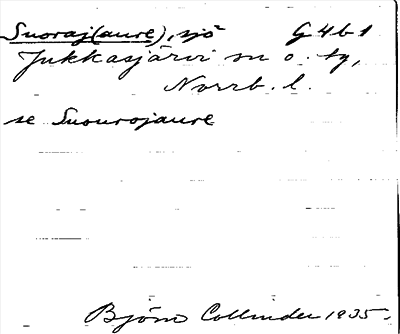 Suoraj(aure), sjö G4b1
Jukkasjärvi sn o. tg,
Norrb. l.
se Suourojaure
Björn Collinder 1935.